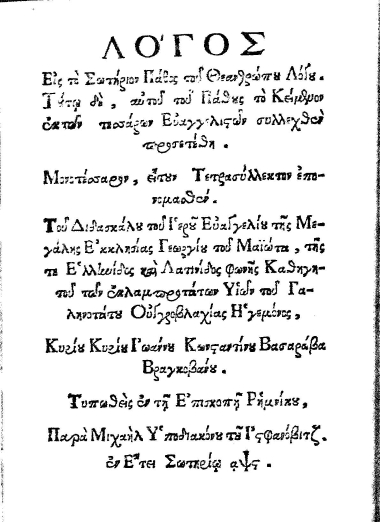 ΛΟΓΟΣ
Εἰς τὸ Σωτήριον Πάθος τοῦ Θεανθρώπου Λόγου.
Τούτῳ δὲ, αὐτοῦ τοῦ Πάθους τὸ Κείμενον
ἐκ τῶν τεσσάρων Εὐαγγελιστῶν συλλεχθὲν
προσετέθη.
Μονοτέσσαρον, εἴτουν Τετρασύλλεκτον ἐπο-
νομασθέν.
Τοῦ Διδασκάλου τοῦ Ἱεροῦ Εὐαγγελίου τῆς Με-
γάλης Ἐκκλησίας Γεωργίου τοῦ Μαϊώτα, τῆς
τε Ἑλληνίδος καὶ Λατινίδος φωνῆς Καθηγη-
τοῦ τῶν ἐκλαμπροτάτων Υἱῶν τοῦ Γα-
ληνοτάτου Οὐγκροβλαχίας Ἡγεμόνος,
Κυρίου Κυρίου Ἰωάννου Κωνσταντίνου Βασαράβα
Βραγκοβάνου.
Τυπωθεὶς ἐν τῇ Ἐπισκοπῇ Ῥημνίκου,
Παρὰ Μιχαὴλ Ὑποδιακόνου τοῦ Ἰστφανόβιτζ.
ἐν Ἔτει Σωτηρίῳ